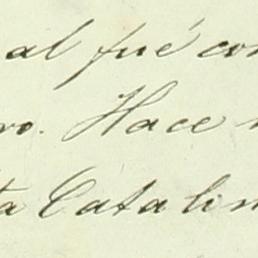 al fué con
ro. Hace
ta Catalin